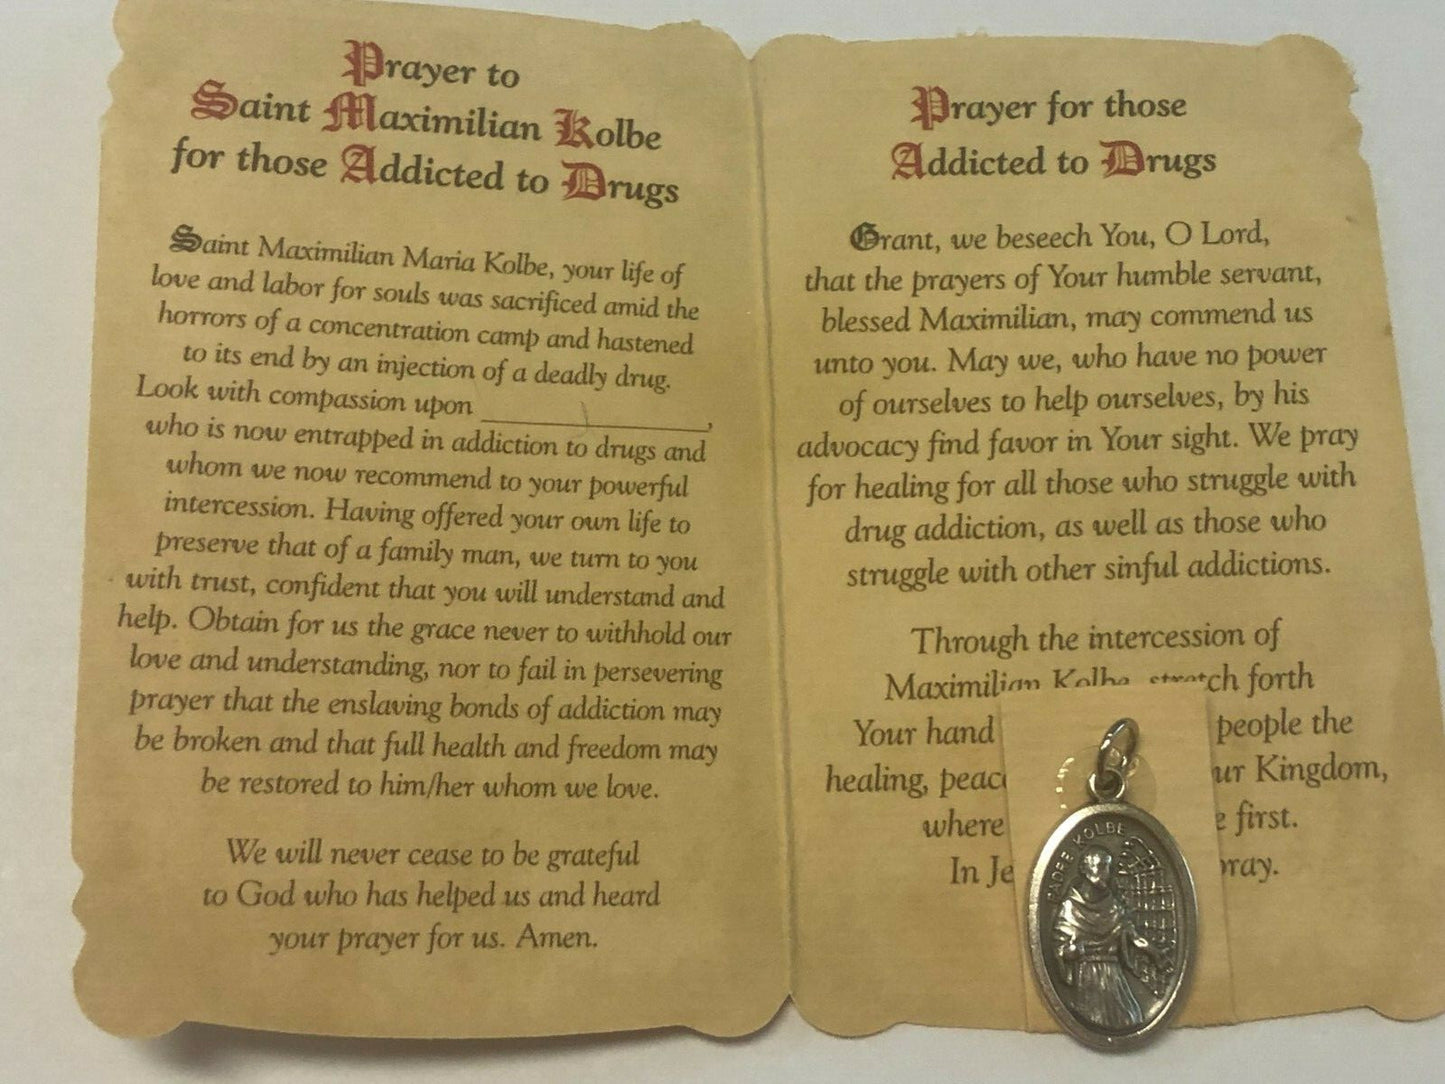 Prayer to
Saint Maximilian Kolbe
for those Addicted to Drugs
Saint Maximilian Maria Kolbe, your life of
love and labor for souls was sacrificed amid the
horrors of a concentration camp and hastened
to its end by an injection of a deadly drug.
Look with compassion upon ____________,
who is now entrapped in addiction to drugs and
whom we now recommend to your powerful
intercession. Having offered your own life to
preserve that of a family man, we turn to you
with trust, confident that you will understand and
help. Obtain for us the grace never to withhold our
love and understanding, nor to fail in persevering
prayer that the enslaving bonds of addiction may
be broken and that full health and freedom may
be restored to him/her whom we love.
We will never cease to be grateful
to God who has helped us and heard
your prayer for us. Amen.
Prayer for those
Addicted to Drugs
Grant, we beseech You, O Lord,
that the prayers of Your humble servant,
blessed Maximilian, may commend us
unto you. May we, who have no power
of ourselves to help ourselves, by his
advocacy find favor in Your sight. We pray
for healing for all those who struggle with
drug addiction, as well as those who
struggle with other sinful addictions.
Through the intercession of
Maximilian Kolbe, stretch forth
Your hand people the
healing, Kingdom,
where first.
In pray.
KOLBE